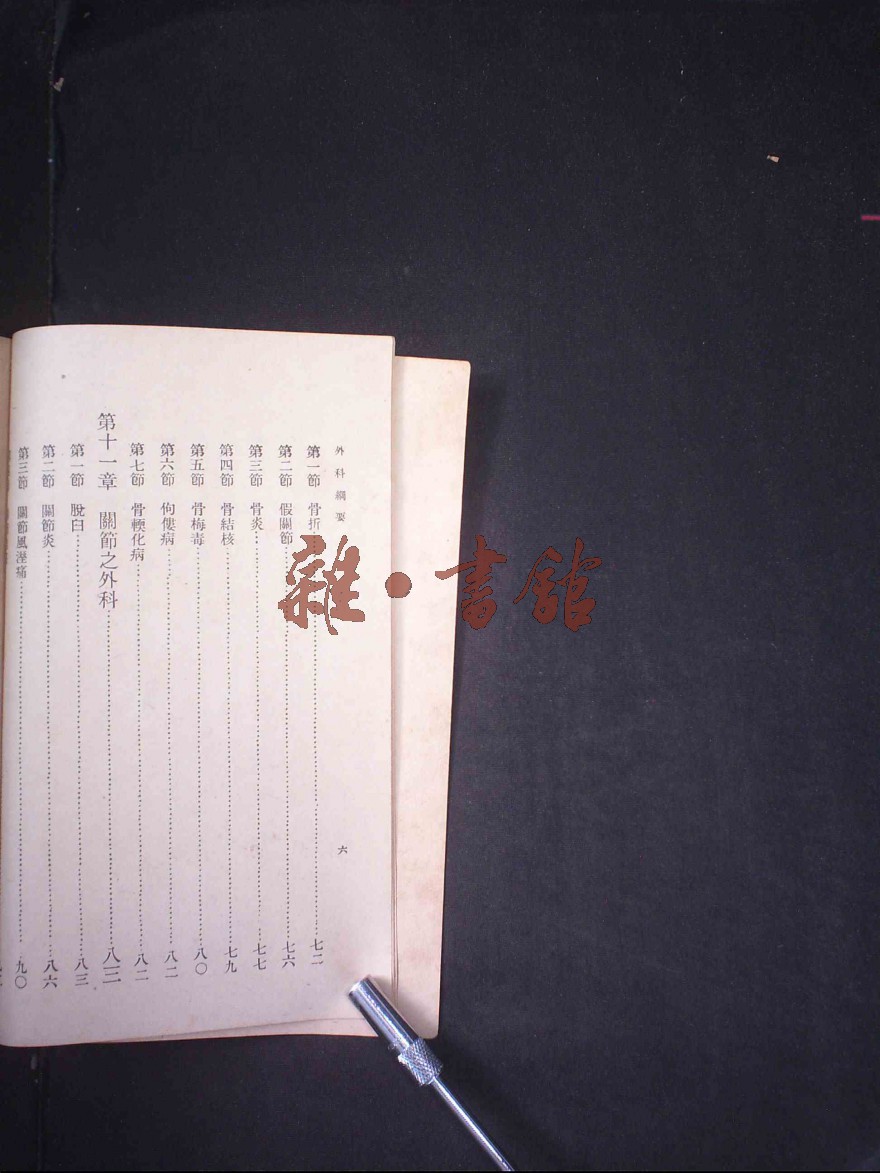 外科綱要
六
第一節 骨折……七二
第二節 假關節……七六
第三節 骨炎……七七
第四節 骨結核……七九
第五節 骨梅毒……八〇
第六節 佝僂病……八二
第七節 骨輭化病……八二
第十一章 關節之外科……八三
第一節 脫臼……八三
第二節 關節炎……八六
第三節 關節風溼痛……九〇
雜·書館